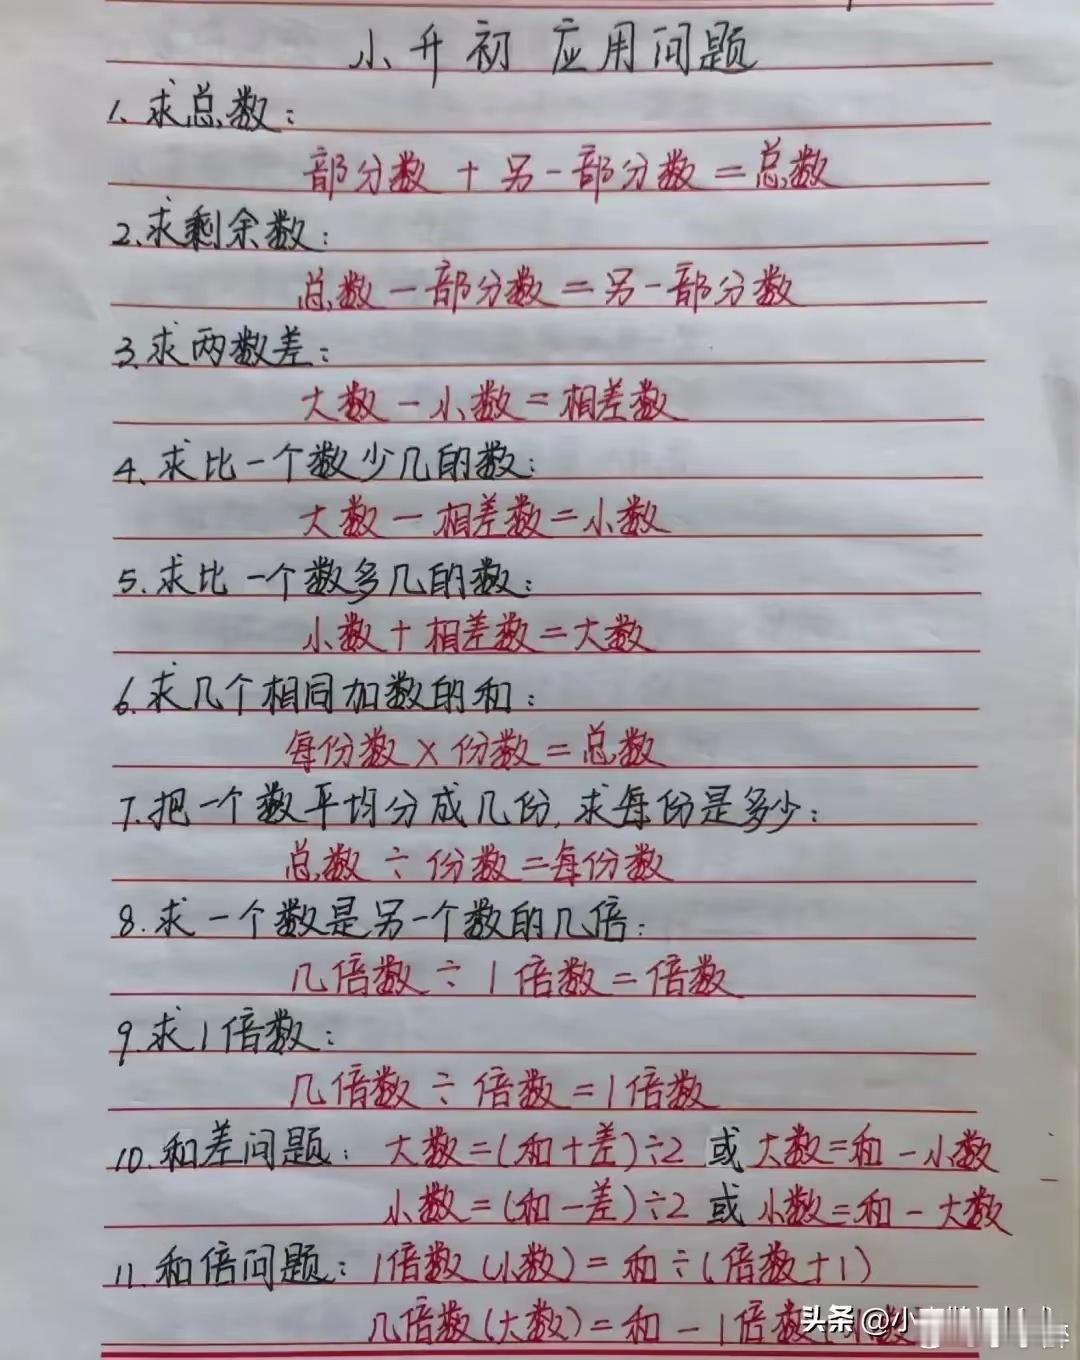 小升初 应用问题
1. 求总数:
部分数 + 另一部分数 = 总数
2. 求剩余数:
总数 - 部分数 = 另一部分数
3. 求两数差:
大数 - 小数 = 相差数
4、求比一个数少几的数:
大数 - 相差数 = 小数
5. 求比一个数多几的数:
小数 + 相差数 = 大数
6. 求几个相同加数的和:
每份数 × 份数 = 总数
7. 把一个数平均分成几份, 求每份是多少:
总数 ÷ 份数 = 每份数
8. 求一个数是另一个数的几倍:
几倍数 ÷ 1倍数 = 倍数
9. 求1倍数:
几倍数 ÷ 倍数 = 1倍数
10. 和差问题: 大数 = (和 + 差) ÷ 2 或 大数 = 和 - 小数
小数 = (和 - 差) ÷ 2 或 小数 = 和 - 大数
11. 和倍问题: 1倍数(小数) = 和 ÷ (倍数 + 1)
几倍数(大数) = 和 - 1倍数
头条 @小